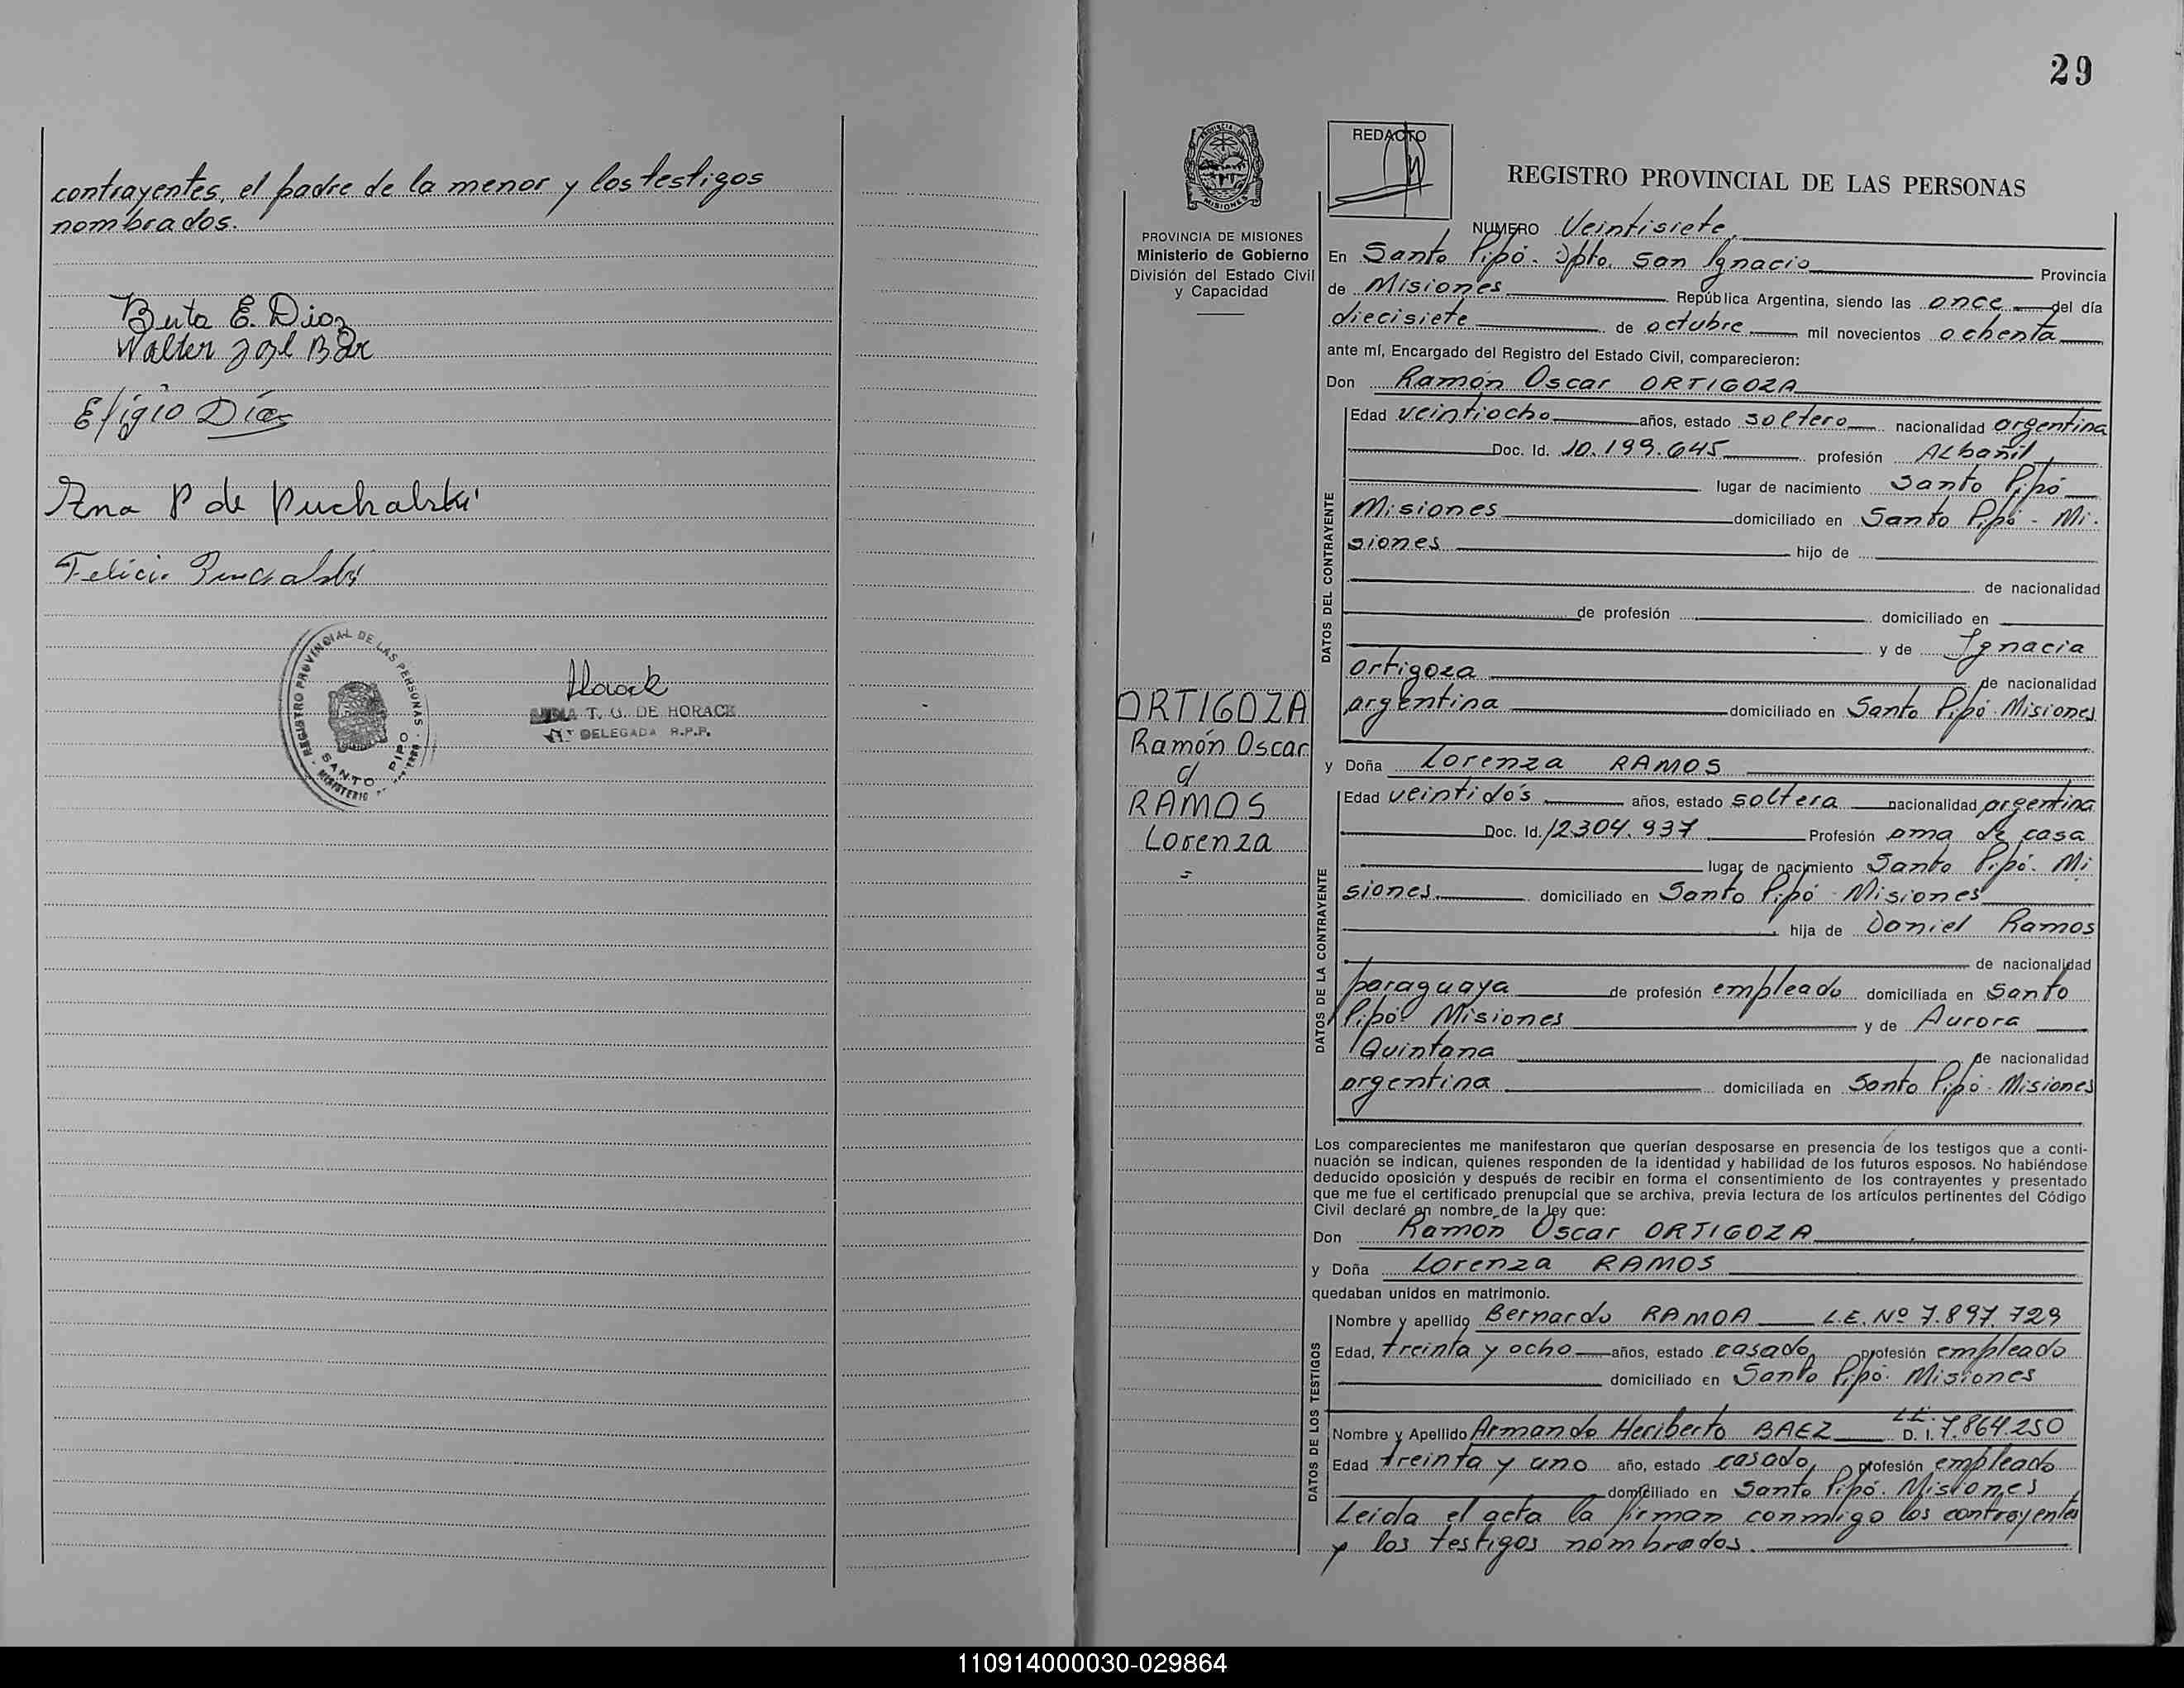 contrayentes, el padre de la menor y los testigos
nombrados.
E. Diaz
Walter
Eligio Díaz
Ana P de Puchalski
Puchalski
REGISTRO PROVINCIAL DE LAS PERSONAS
SANTO PIPO
MINISTERIO
T. G. DE HORACK
DELEGADA R.P.P.
29
PROVINCIA DE MISIONES
Ministerio de Gobierno
División del Estado Civil
y Capacidad
ORTIGOZA
Ramón Oscar
c/
RAMOS
Lorenza
REDACTO
REGISTRO PROVINCIAL DE LAS PERSONAS
NUMERO Veintisiete
En Santo Pipó. Dpto. San Ignacio Provincia
de Misiones República Argentina, siendo las once del día
diecisiete de octubre mil novecientos ochenta
ante mí, Encargado del Registro del Estado Civil, comparecieron:
Don Ramón Oscar ORTIGOZA
DATOS DEL CONTRAYENTE
Edad veintiocho años, estado soltero nacionalidad argentina
Doc. Id. 10.199.645 profesión Albañil
lugar de nacimiento Santo Pipó
Misiones domiciliado en Santo Pipó - Mi.
siones hijo de
de nacionalidad
de profesión domiciliado en
y de Ignacia
Ortigoza de nacionalidad
argentina domiciliado en Santo Pipó. Misiones
y Doña Lorenza RAMOS
DATOS DE LA CONTRAYENTE
Edad veintidós años, estado soltera nacionalidad argentina
Doc. Id. 12.304.937 Profesión ama de casa
lugar de nacimiento Santo Pipó. Mi
siones. domiciliado en Santo Pipó - Misiones
hija de Daniel Ramos
de nacionalidad
paraguaya de profesión empleado domiciliada en Santo
Pipó Misiones y de Aurora
Quintana de nacionalidad
argentina domiciliada en Santo Pipó - Misiones
Los comparecientes me manifestaron que querían desposarse en presencia de los testigos que a conti-
nuación se indican, quienes responden de la identidad y habilidad de los futuros esposos. No habiéndose
deducido oposición y después de recibir en forma el consentimiento de los contrayentes y presentado
que me fue el certificado prenupcial que se archiva, previa lectura de los artículos pertinentes del Código
Civil declaré en nombre de la ley que:
Don Ramón Oscar ORTIGOZA
y Doña Lorenza RAMOS
quedaban unidos en matrimonio.
DATOS DE LOS TESTIGOS
Nombre y apellido Bernardo RAMOA L.E. Nº 7.897.729
Edad, treinta y ocho años, estado casado profesión empleado
domiciliado en Santo Pipó. Misiones
Nombre y Apellido Armando Heriberto BAEZ L.E. D. I. 7.864.250
Edad treinta y uno año, estado casado, profesión empleado
domiciliado en Santo Pipó. Misiones
Leida el acta la firman conmigo los contrayentes
y los testigos nombrados.
110914000030-029864